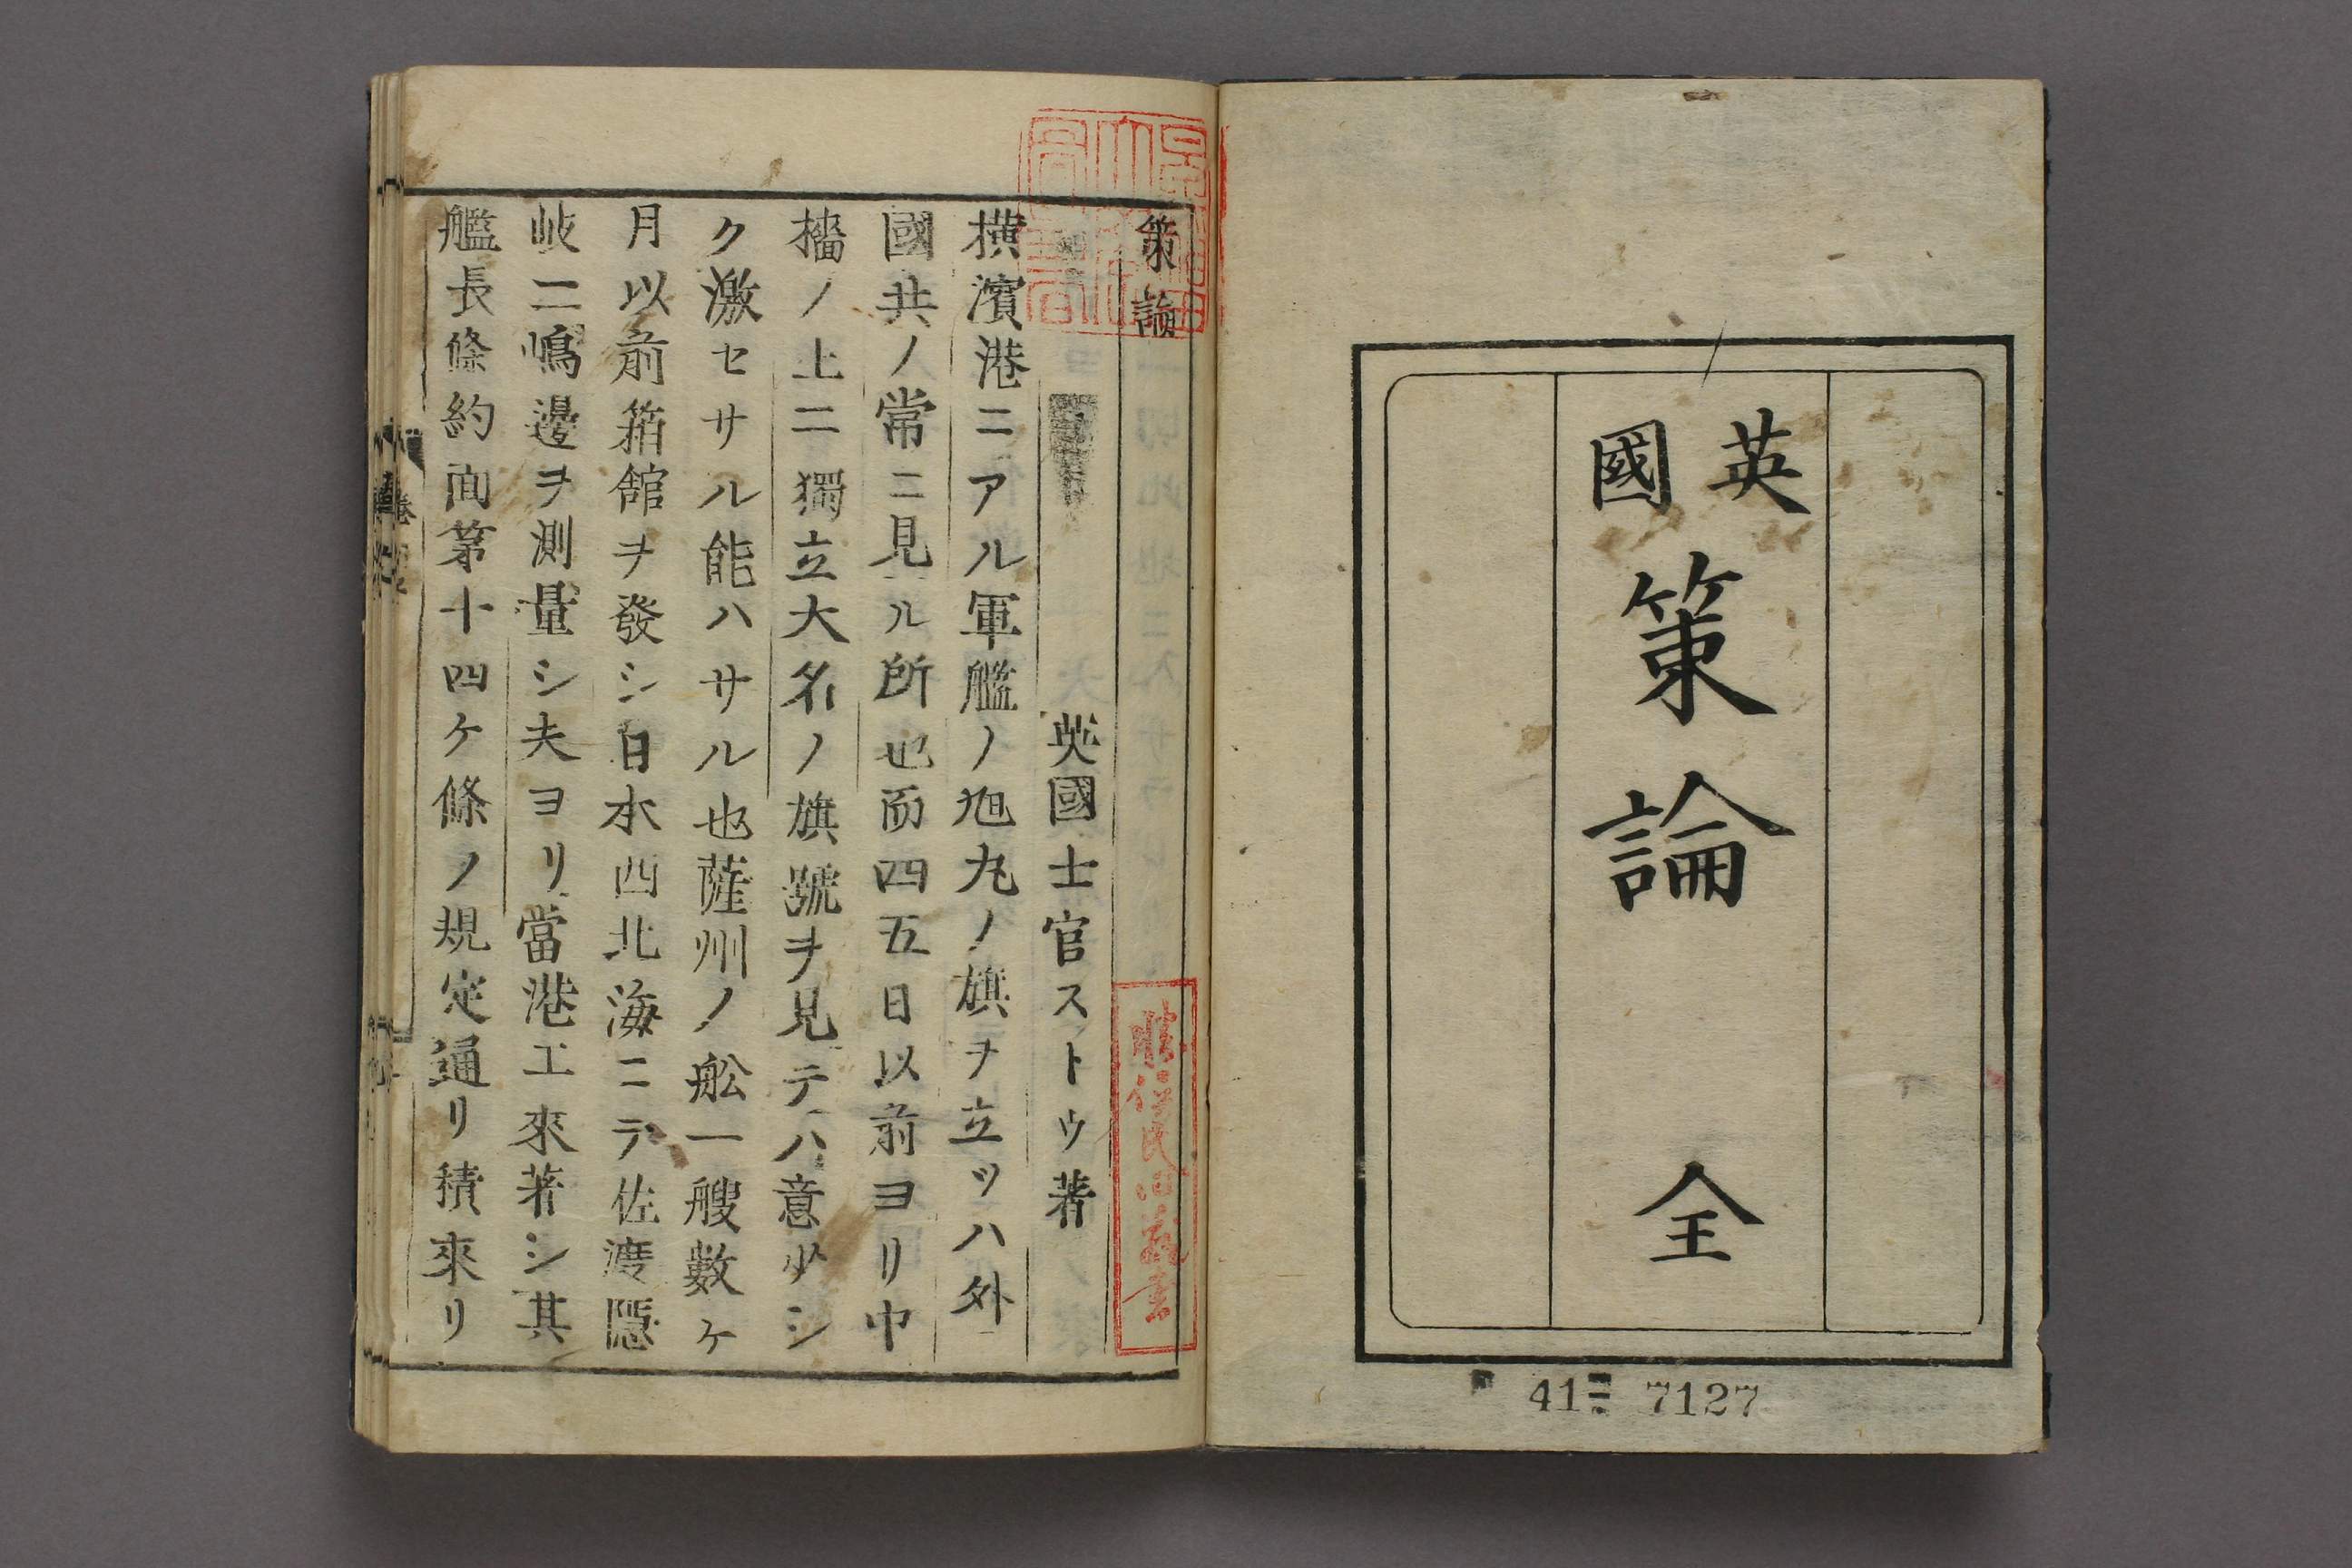 英國
策論
全
41 7127
策論
英國士官ストウ著
横濱港ニアル軍艦ノ旭丸ノ旗ヲ立ツハ外
國共ノ常ニ見ル所也而四五日以前ヨリ中
檣ノ上ニ獨立大名ノ旗號ヲ見テハ意少シ
ク激セサル能ハサル也薩州ノ舩一艘數ケ
月以前箱館ヲ發シ日本西北海ニテ佐渡隱
岐二嶋邊ヲ測量シ夫ヨリ當港エ來著シ其
艦長條約面第十四ケ條ノ規定通リ積來リ